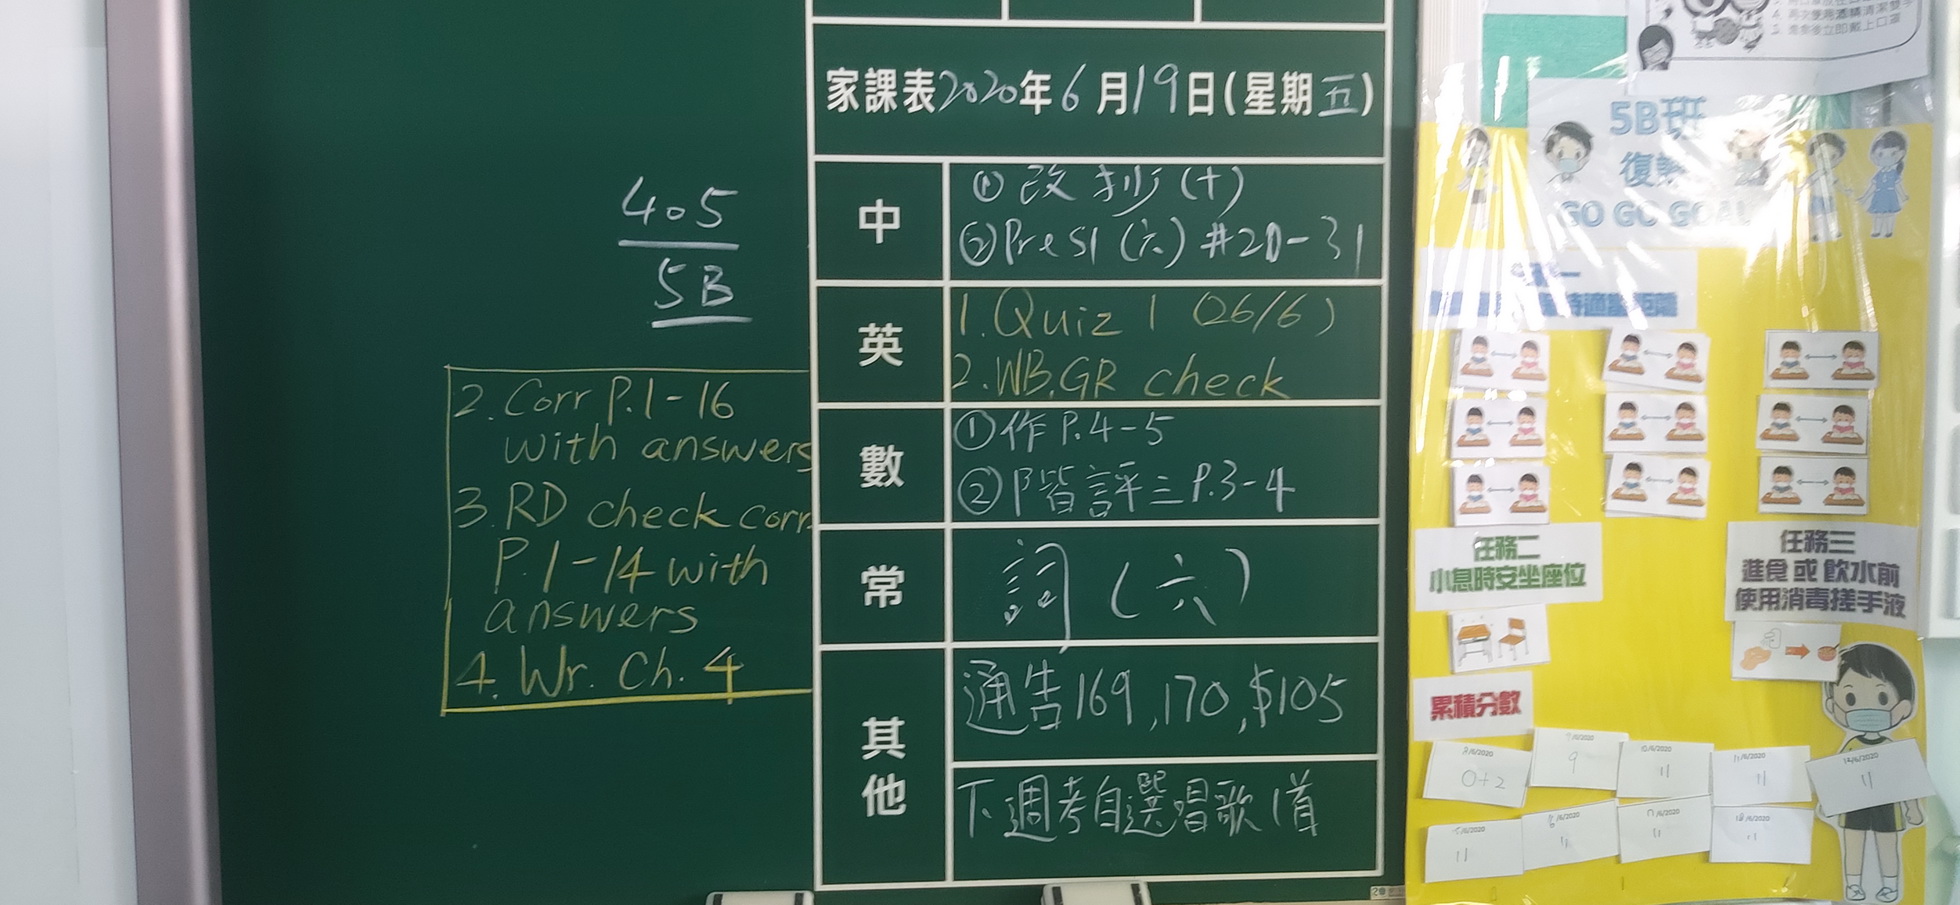 家課表2020年6月19日(星期五)
405
5B
中
① 改抄(十)
② Pre S1 (六) #20-31
英
1. Quiz 1 (26/6)
2. WB, GR check
2. Corr P.1-16
with answers
3. RD check corr
P.1-14 with
answers
4. Wr. Ch. 4
數
①作P.4-5
②階評三P.3-4
常
詞(六)
其他
通告169,170,$105
下週考自選唱歌1首
5B班
GO GO GOAL
任務二
小息時安坐座位
任務三
進食或飲水前
使用消毒搓手液
累積分數
0+2
9
11
11
11
11
11
11
11